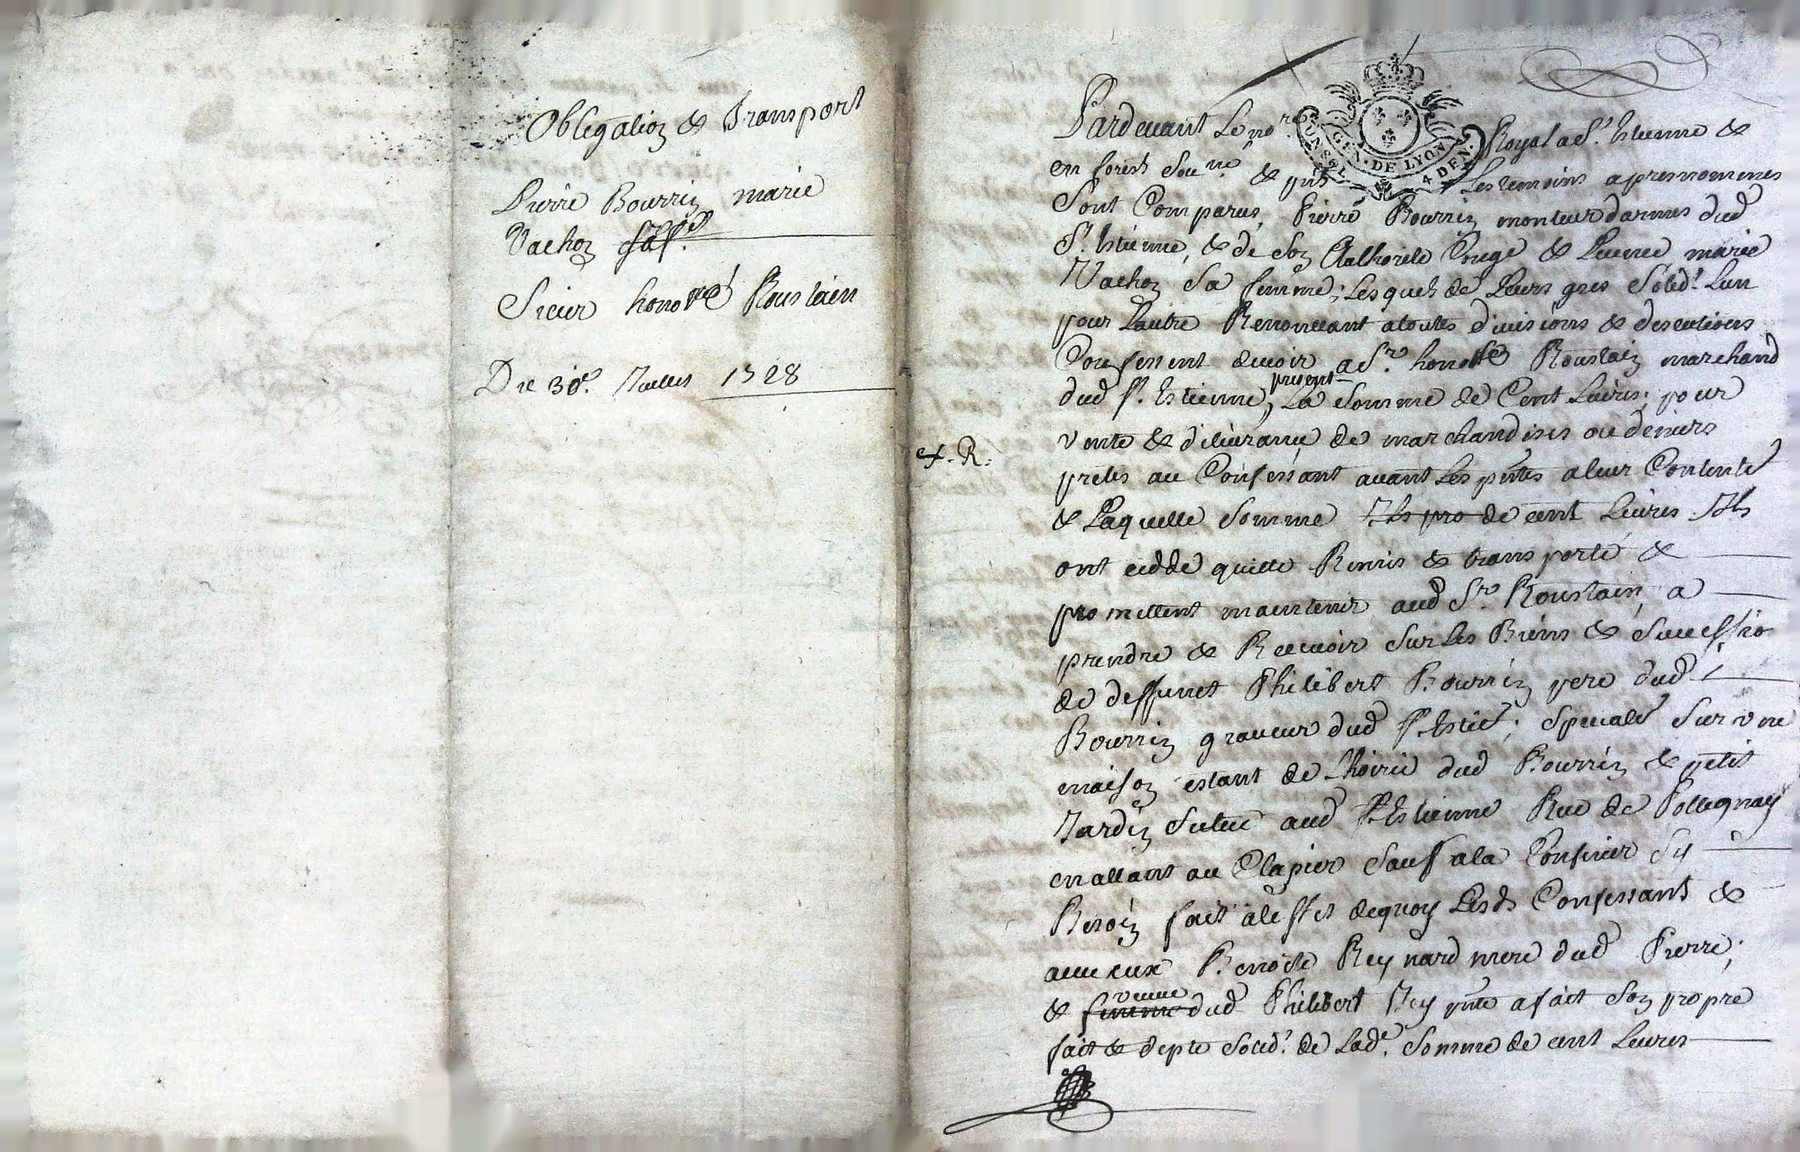 Obligation & Transport
Pierre Bourrin marie
Vachon
Sieur honoré Roustain
Du 30e. Juillet 1728
Pardevant Le nore Royal a St. Estienne &
en forest sousné. & pnts Les temoins apresnommes
GEN. DE LYON 4 DEN.
Sont Comparus, Pierre Bourrin monteur darmes dud
St. Estienne, & de son Authorité Conge & Licence marie
Vachon Sa femme; Lesquels de Leurs gres Solid.t Lun
pour Lautre Renoncant atoutes divisions & discutions
Confessent devoir a Sr. honoré Roustain marchand
present
dud St. Estienne, La Somme de Cent Livres; pour
vente & delivrance de marchandises ou deniers
x. R.
pretés au Confessant avant Les pntes a leur Contente
& Laquelle Somme Ils pro de cent Livres Ils
ont ceddé quitté Remis & transporté &
promettent maintenir aud Sr. Roustain, a
prendre & Recevoir Sur Les Biens & Successio
de deffunct Philibert Bourrin pere dud
Bourrin graveur dud St. Estie; Specialt Sur une
maison estant de Lhoirie dud Bourrin & petit
Jardin Situé aud St. Estienne Rue de Pollegnay
en allant au Clapier Sauf a la Confiner Sy
Besoin fait a leffet dequoy Lesds Confessants &
avec eux Benoite Reynard mere dud Pierre;
veuve
& femme dud Philibert Icy pnte a fait Son propre
fait & depte Solid.t de Lade. Somme de cent Livres